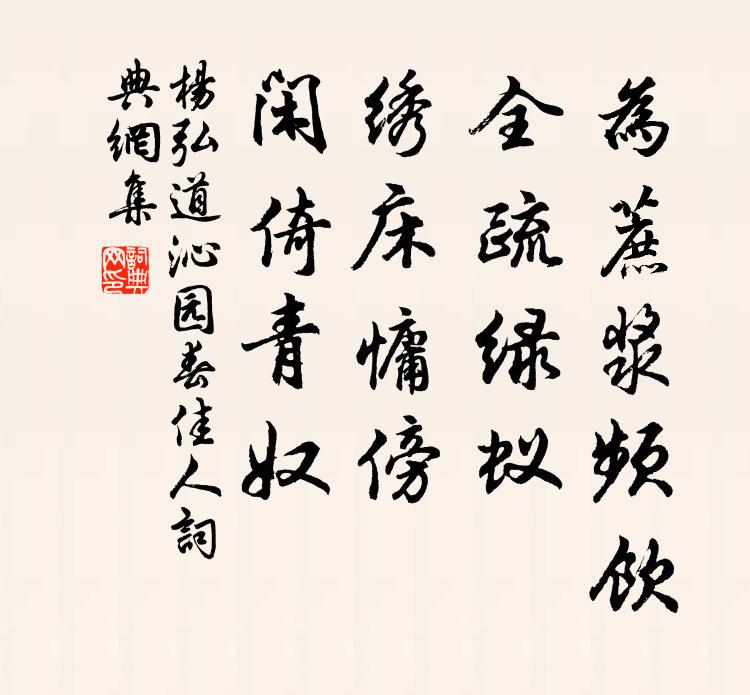 為蔗漿頻飲
全疏绿蚁
绣床慵傍
閑倚青奴
楊弘道沁园春佳人詞
典網集
詞典网印